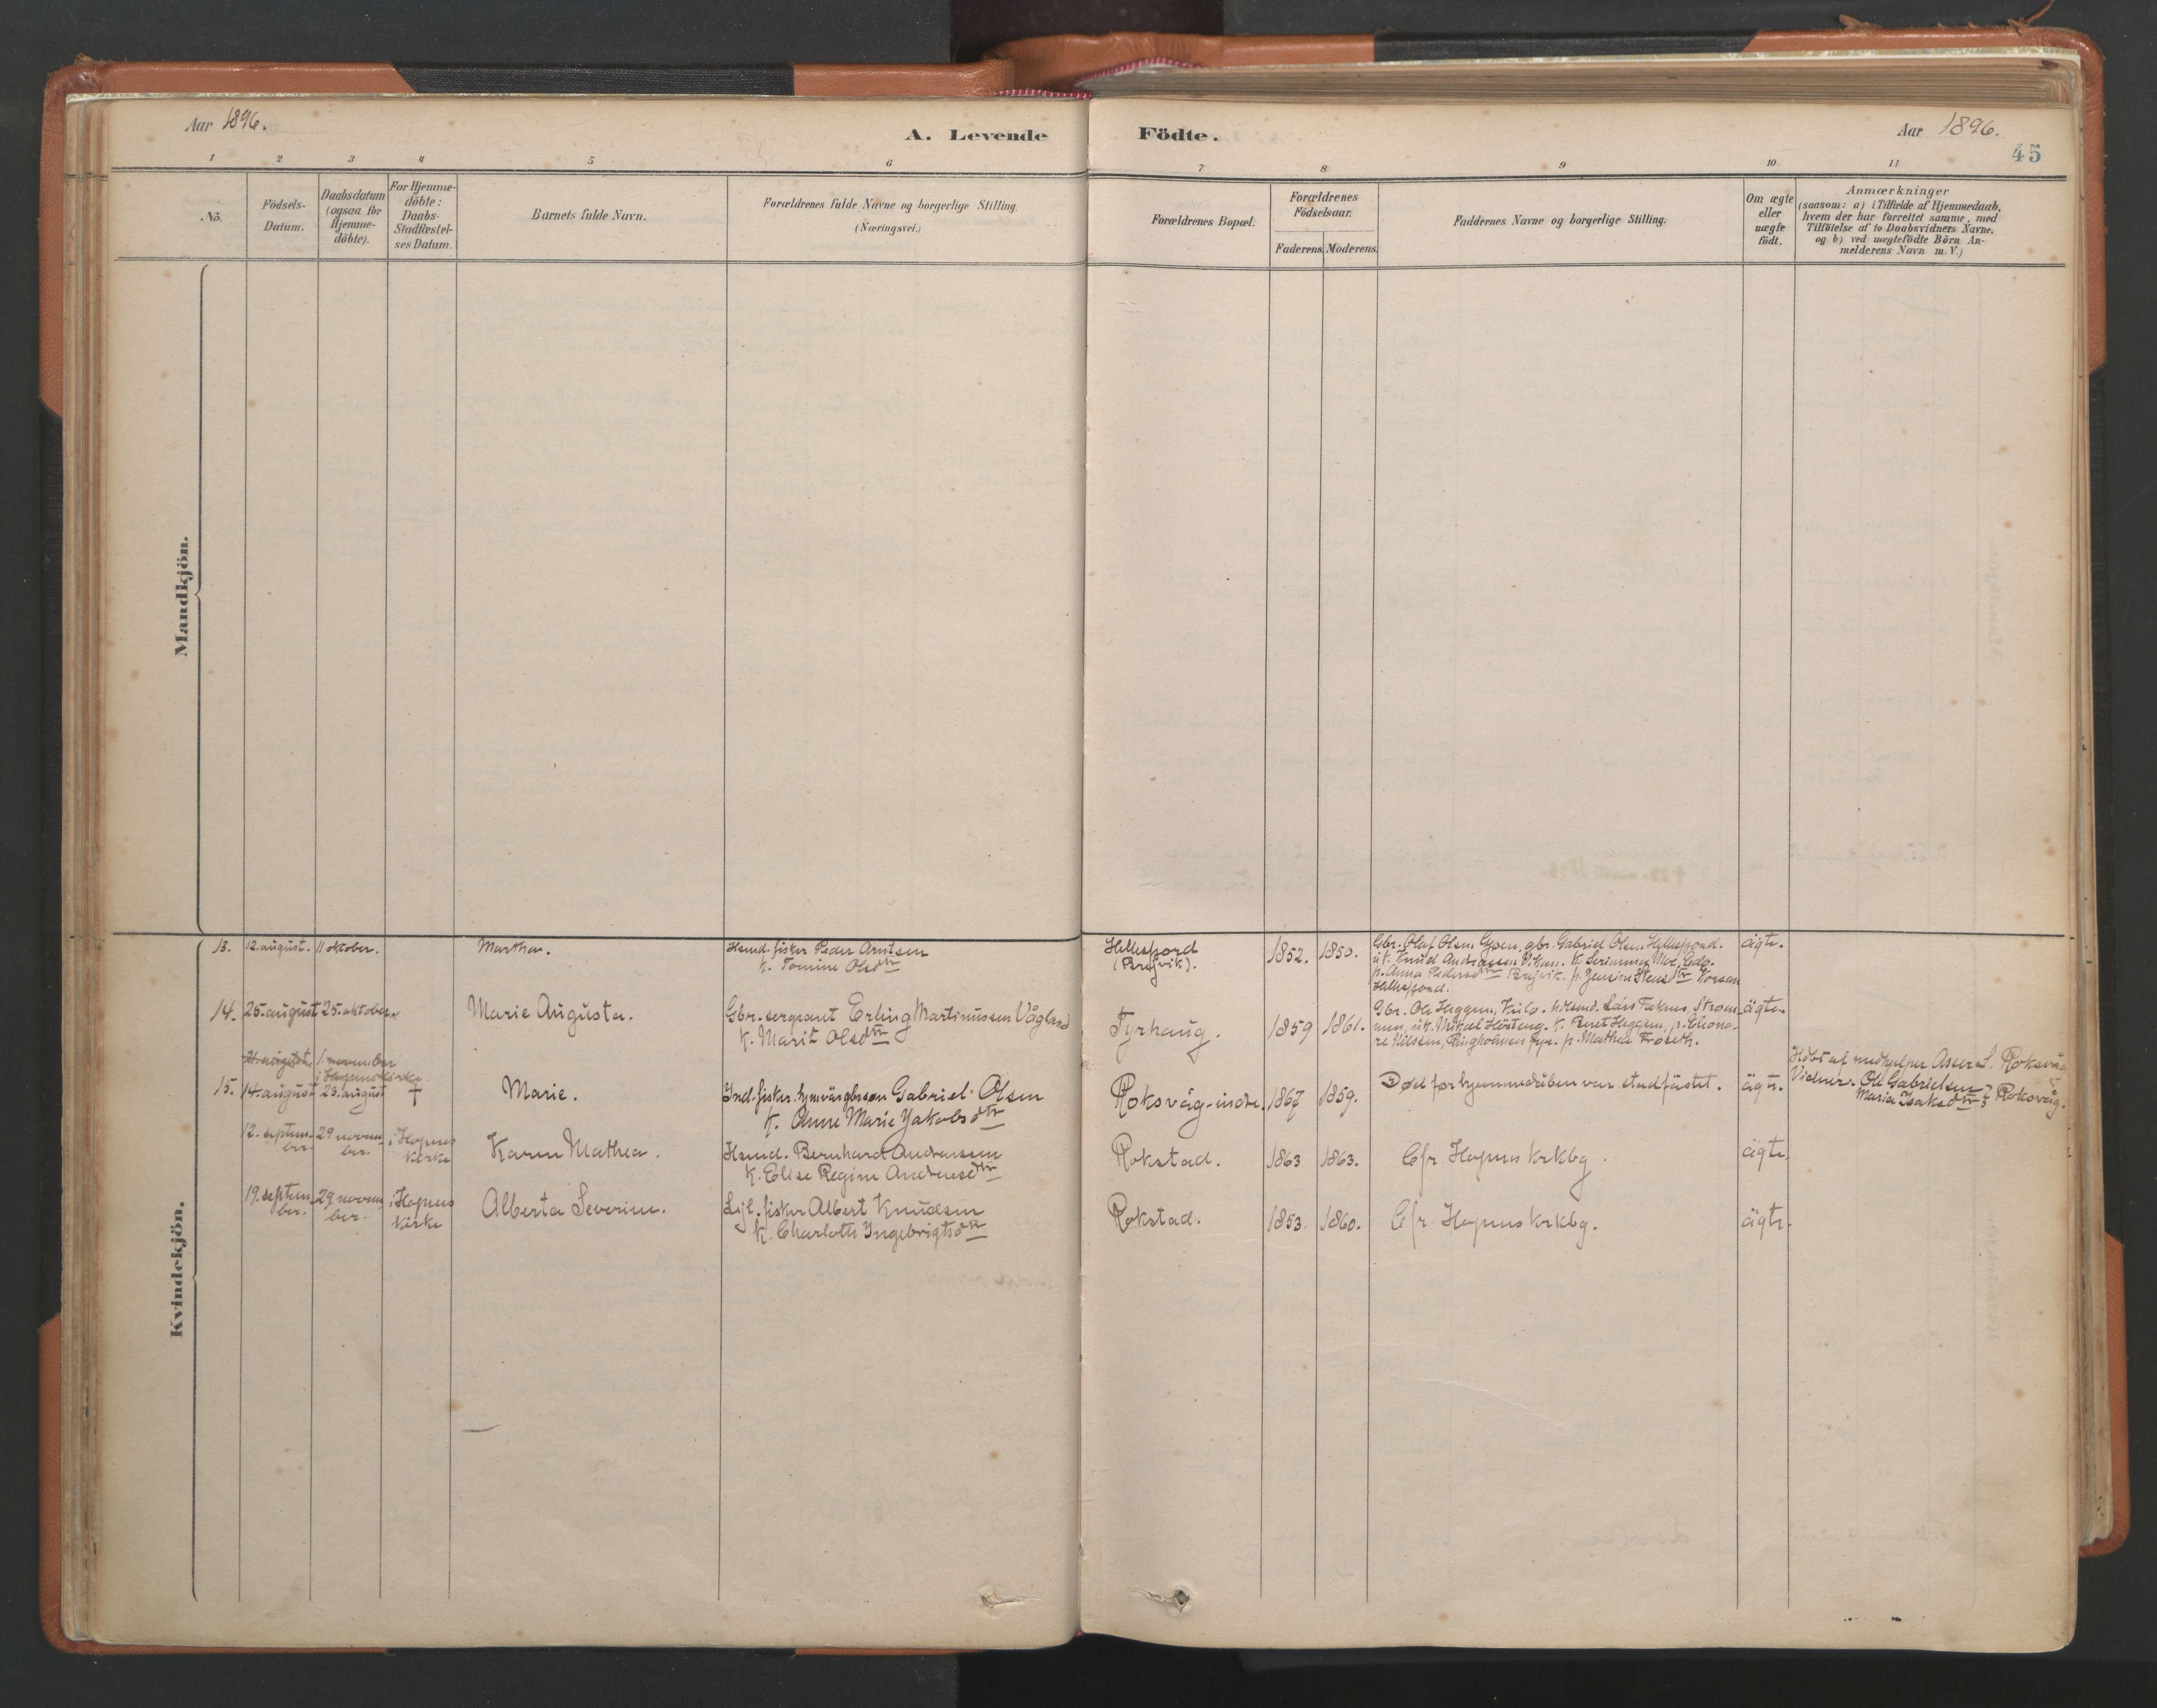 Aar 1896.
A. Levende Födte.
Aar 1896.
45
1 2 3 4 5 6 7 8 9 10 11
No.
Födsels-
Datum.
Daabsdatum
(ogsaa for
Hjemme-
döbte).
For Hjemme-
döbte:
Daabs-
Stadfæstel-
ses Datum.
Barnets fulde Navn.
Forældrenes fulde Navne og borgerlige Stilling.
(Næringsvei.)
Forældrenes Bopæl.
Forældrenes
Födselsaar.
Faderens. Moderens.
Faddernes Navne og borgerlige Stilling.
Om ægte
eller
uægte
födt.
Anmærkninger
(saasom: a) i Tilfælde af Hjemmedaab,
hvem der har forrettet samme, med
Tilföielse af to Daabsvidners Navne,
og b) ved uægtefödte Börn An-
melderens Navn m.V.)
Mandkjön.
Kvindekjön.
13. 12. august. 11 oktober.
Martha.
Hsmd. fisker Peder Arntsen
k. Tomine Olsdtr
Hellesfjord
(Brejvik).
1852. 1850.
Gbr. Olaf Olsen Gjøen, gbr. Gabriel Olsen Hellesfjord.
uk. Knud Andreassen Vikan.
p. Anna Pedersdtr Brejvik.
Hellesfjord.
ägte.
14. 25. august 25. oktober.
Marie Augusta.
Gbr. sergeant Erling Martinussen Vågland
k. Marit Olsdtr
Tyrhaug.
1859 1861.
Gbr. Ole Heggem,
k. Beret Heggem,
re Nilssen, Ringholmen fyr. p. Mathea Froseth.
ägte.
21. august 1. november
i Hopens kirke.
15. 14. august 23. august †
Marie.
Ind. fisker. Gabriel Olsen
k. Anne Marie Jakobsdtr
Roksvåg-indre.
1867 1859.
Død før hjemmedåben var stadfästet.
ägte.
Hdbt af medhjelper Asser L. Roksvåg
Vidner. Ole Gabrielsen
Maria Isaksdtr } Roksvåg.
12. septem-
ber.
29 novem-
ber.
i Hopens
kirke
Karen Mathea.
Hsmd. Bernhard Andreassen
k. Elise Regine Andreasdtr
Rokstad.
1863 1863.
Cfr. Hopens krkbg.
ägte.
19. septem-
ber.
29 novem-
ber.
i Hopens
kirke
Alberta Severine.
Lejl. fisker Albert Knudsen
k. Charlotte Ingebrigtsdtr
Rokstad.
1853. 1860.
Cfr. Hopens krkbg.
ägte.